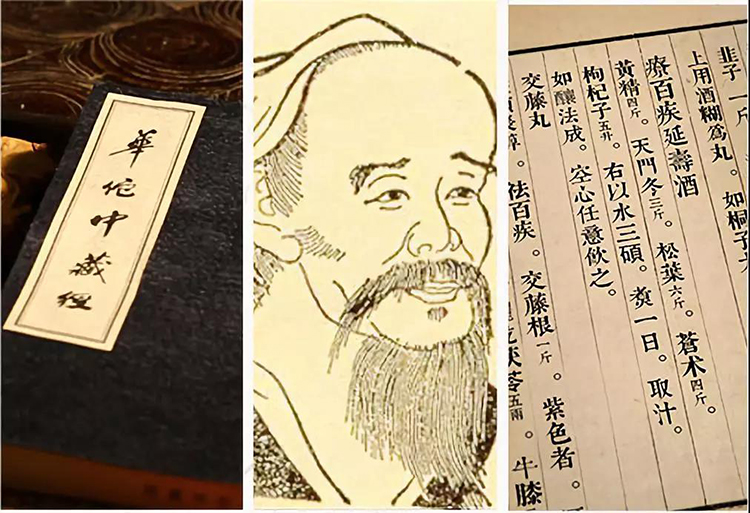 華佗中藏經
韭子一斤
上用酒糊為丸。如桐子
療百疾延壽酒
黃精四斤。天門冬三斤。松葉六斤。蒼术四斤。
枸杞子五升。右以水三碩。煑一日。取汁。
如釀法成。空心任意飲之。
交藤丸
祛百疾。交藤根一斤。紫色者。
茯苓五兩。牛膝